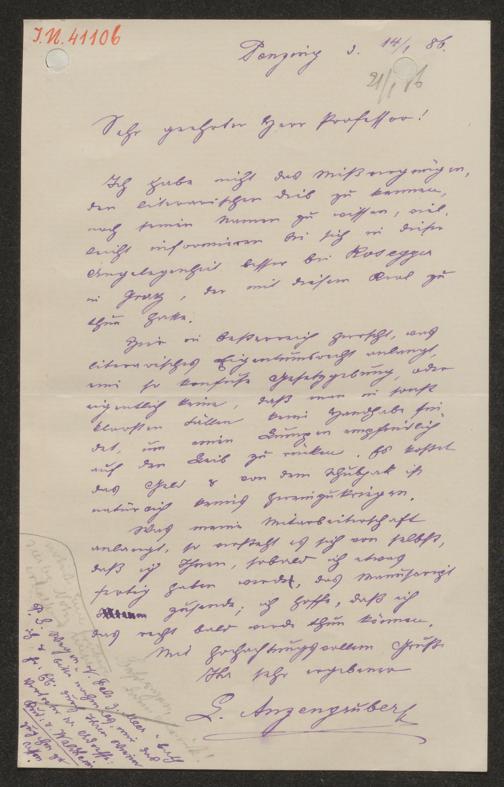 J.N. 41106
Penzing d. 14/1 86.
21/1 86
Sehr geehrter Herr Professor!
Ich habe nicht das Mißvergnügen,
den literarischen Dieb zu kennen,
noch seinen Namen zu wissen, viel-
leicht informieren Sie sich in dieser
Angelegenheit besser bei Rosegger
in Gratz, der mit diesem Kerl zu
thun hatte.
Hier in Oesterreich herrscht, was
literarisches Eigenthumsrecht anlangt,
eine so konfuse Gesetzgebung, oder
eigentlich keine, daß man in sonst
klarsten Fällen keine Handhabe fin-
det, um einem Lumpen empfindlich
auf den Leib zu rücken. Es kostet
das Geld & von dem Schubjak ist
natürlich keines hereinzukriegen.
Was meine Mitarbeiterschaft
anlangt, so versteht es sich von selbst,
daß ich Ihnen, sobald ich etwas
fertig haben werde, das Manuscript
zusende; ich hoffe, daß ich
das recht bald werde thun können.
Mit hochachtungsvollem Gruße
Ihr sehr ergebener
L. Anzengruber
P.S. Wegen